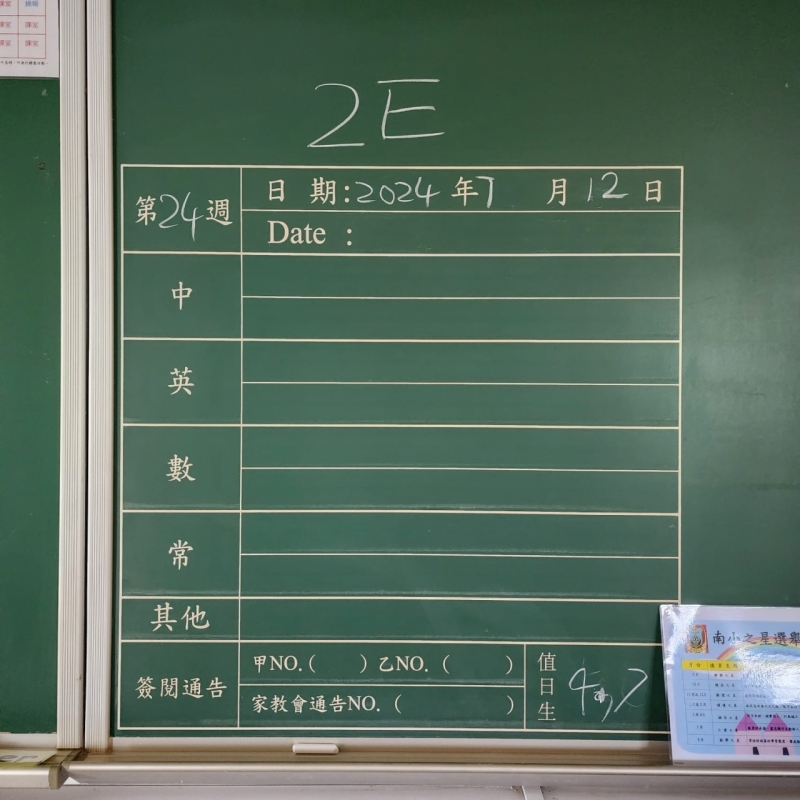 2E
第24週
日 期:2024 年7 月12日
Date :
中
英
數
常
其他
簽閱通告
甲NO.( ) 乙NO. ( )
家教會通告NO. ( )
值日生
南小之星選舉